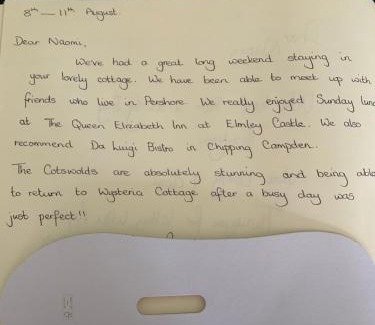 8th — 11th August.
Dear Naomi,
We've had a great long weekend staying in
your lovely cottage. We have been able to meet up with
friends who live in Pershore. We really enjoyed Sunday lunc
at The Queen Elizabeth Inn at Elmley Castle. We also
recommend Da Luigi Bistro in Chipping Campden.
The Cotswolds are absolutely stunning and being able
to return to Wysteria Cottage after a busy day was
just perfect!!